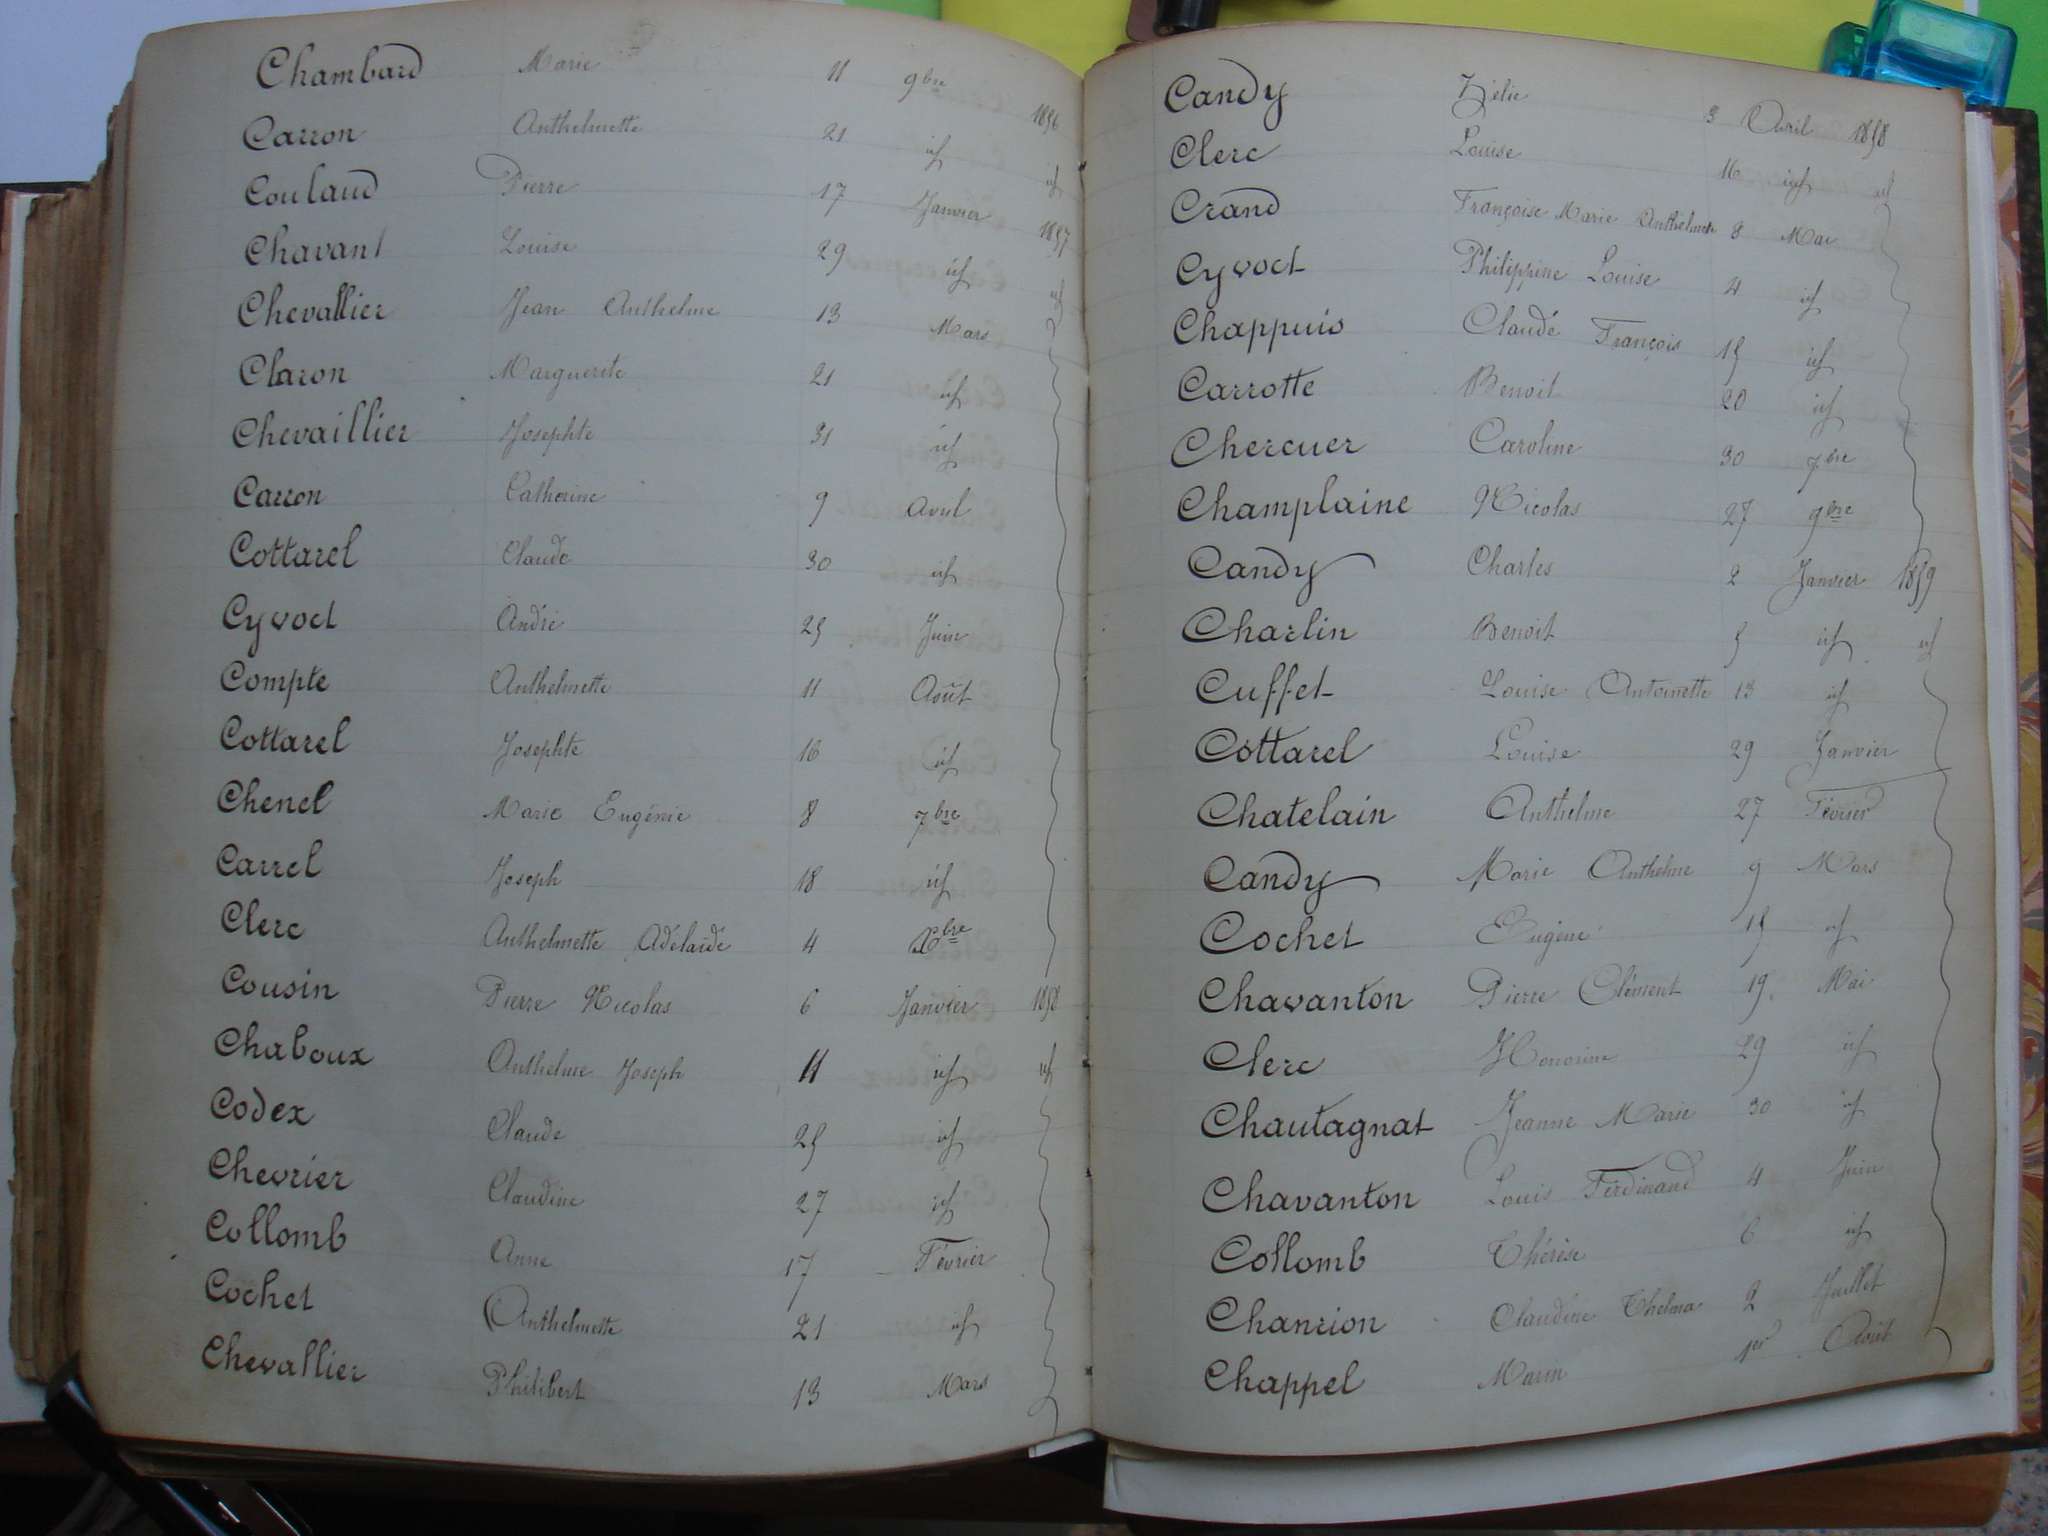 Chambard Marie 11 9bre 1856
Carron Anthelmette 21 id id
Coulaud Pierre 17 Janvier 1857
Chavant Louise 29 id id
Chevallier Jean Anthelme 13 Mars
Claron Marguerite 21 id
Chevaillier Josephte 31 id
Carron Catherine 9 Avril
Cottarel Claude 30 id
Cyvoct André 25 Juin
Compte Anthelmette 11 Août
Cottarel Josephte 16 id
Chenel Marie Eugénie 8 7bre
Carrel Joseph 18 id
Clerc Anthelmette Adélaïde 4 Xbre
Cousin Pierre Nicolas 6 Janvier 1858
Chaboux Anthelme Joseph 11 id id
Codex Claude 25 id
Chevrier Claudine 27 id
Collomb Anne 17 Février
Cochet Anthelmette 21 id
Chevallier Philibert 13 Mars
Candy Zélie 3 Avril 1858
Clerc Louise 16 id id
Crand Françoise Marie Anthelmette 8 Mai
Cyvoct Philippine Louise 4 id
Chappuis Claude François 15 id
Carrotte Benoit 20 id
Chercuer Caroline 30 7bre
Champlaine Nicolas 27 9bre
Candy Charles 2 Janvier 1859
Charlin Benoit 5 id id
Cuffet Louise Antoinette 13 id
Cottarel Louise 29 Janvier
Chatelain Anthelme 27 Février
Candy Marie Anthelme 9 Mars
Cochet Eugène 15 id
Chavanton Pierre Clément 19 Mai
Clerc Honorine 29 id
Chautagnat Jeanne Marie 30 id
Chavanton Louis Ferdinand 4 Juin
Collomb Thérèse 6 id
Chanrion Claudine Thelma 2 Juillet
Chappel Marin 1er Août